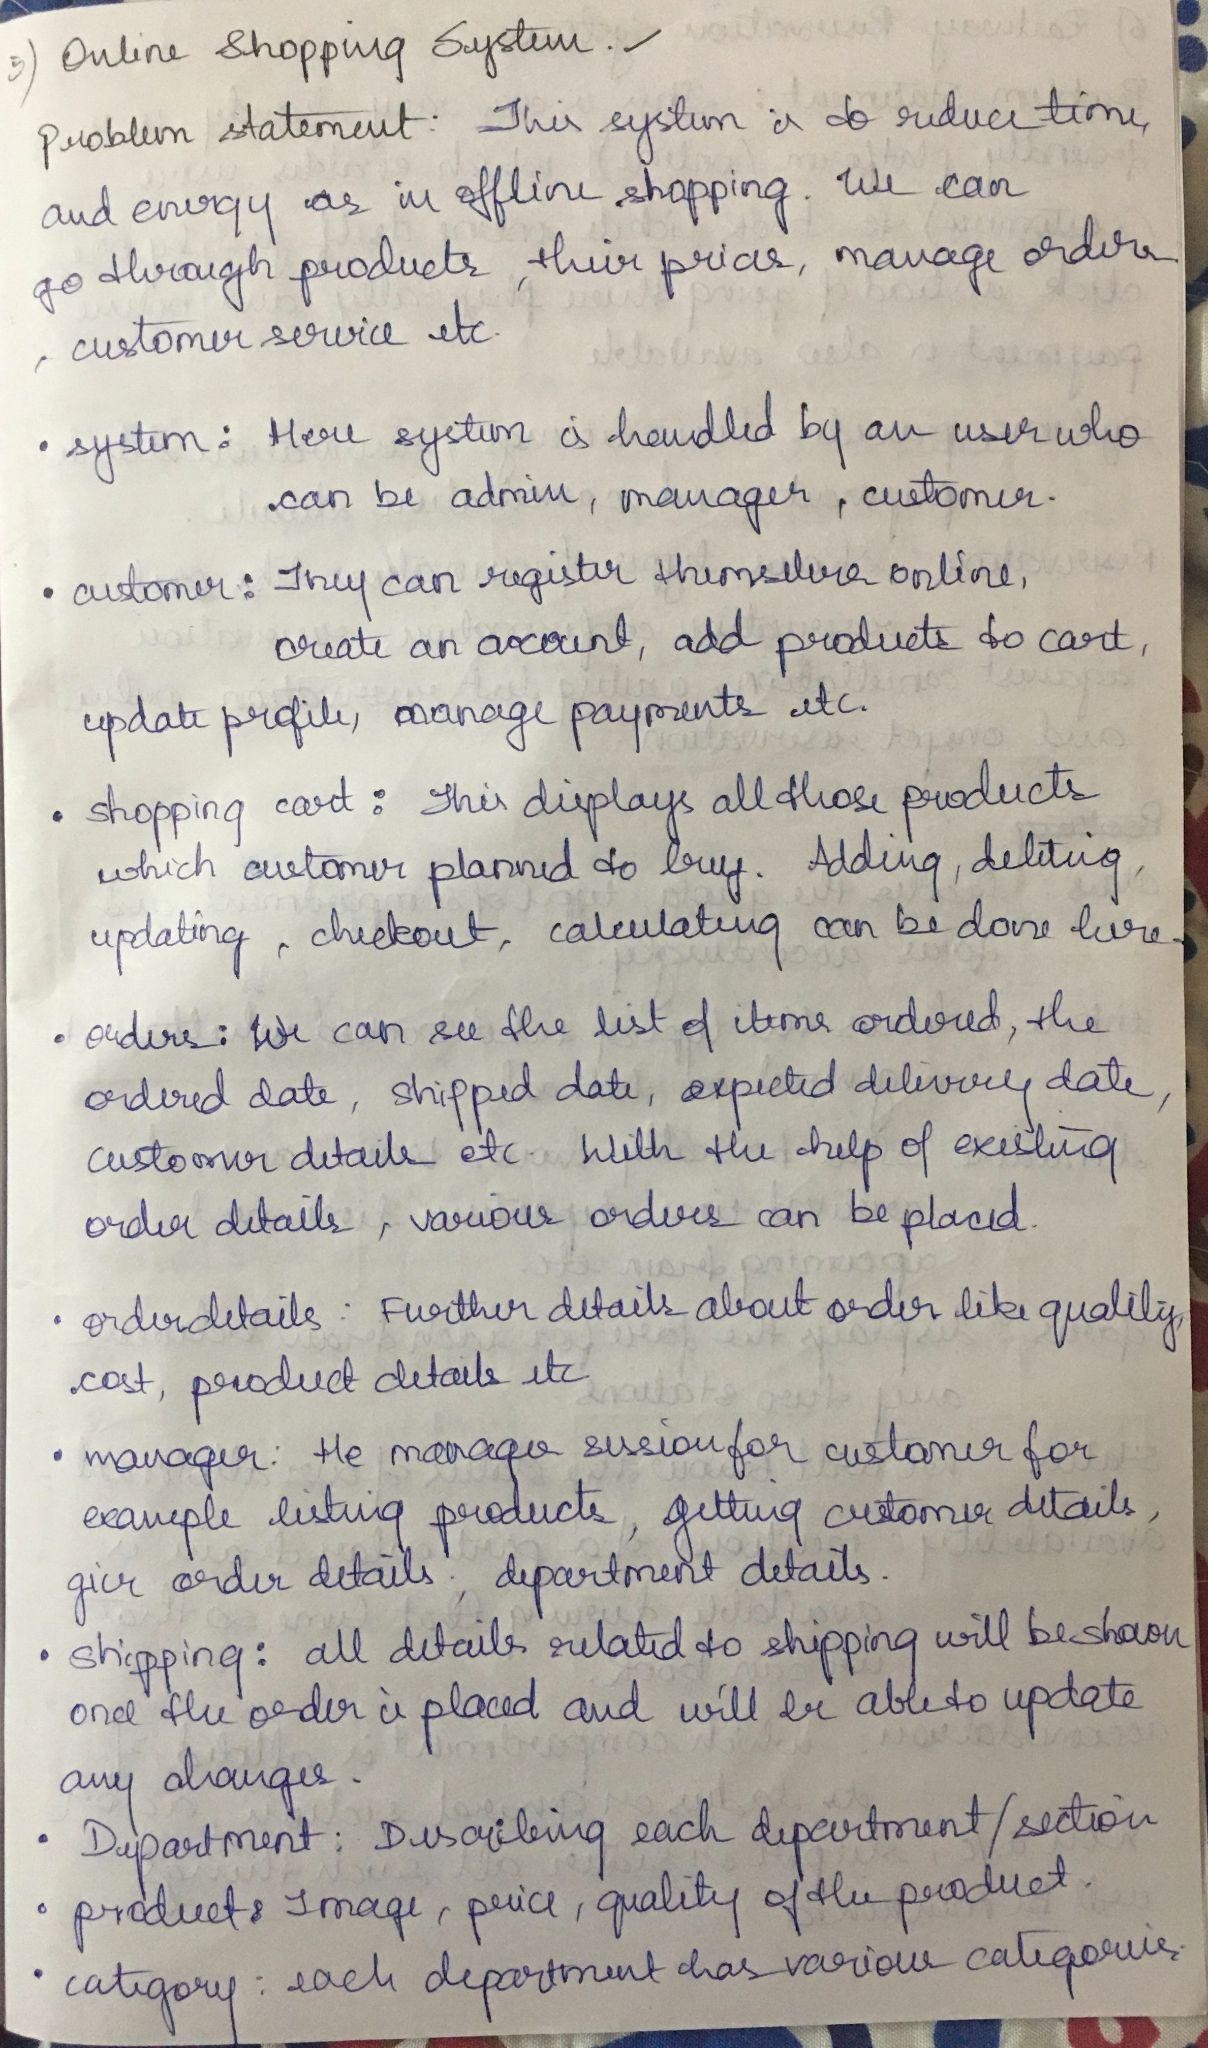 5) Online Shopping System. ✓
Problem statement: This system is to reduce time,
and energy as in offline shopping. We can
go through products, their prices, manage orders
, customer service etc.
• system: Here system is handled by an user who
can be admin, manager, customer.
• customer: They can register themselves online,
create an account, add products to cart,
update profile, manage payments etc.
• shopping cart: This displays all those products
which customer planned to buy. Adding, deleting,
updating, checkout, calculating can be done here.
• orders: We can see the list of items ordered, the
ordered date, shipped date, expected delivery date,
customer details etc. With the help of existing
order details, various orders can be placed.
• orderdetails: Further details about order like quality,
cost, product details etc
• manager: He manages session for customer for
example listing products, getting customer details,
give order details, department details.
• shipping: all details related to shipping will be shown
once the order is placed and will be able to update
any changes.
• Department: Describing each department/section
• product: Image, price, quality of the product.
• category: each department has various categories.